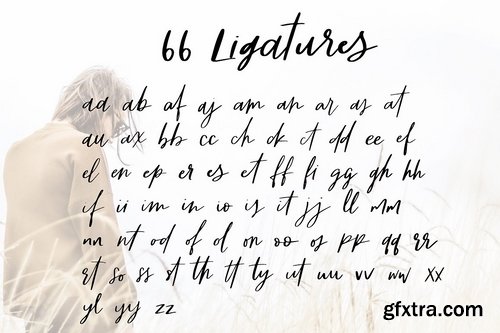 66 Ligatures
ad ab af aj am an ar as at
au ax bb cc ch ck ct dd ee ef
el en ep er es et ff fi gg gh hh
if ii im in io is it jj ll mm
nn nt od of ol on oo os pp qq rr
rt so ss st th tt ty ut uu vv ww xx
yl yy zz
gfxtra.com